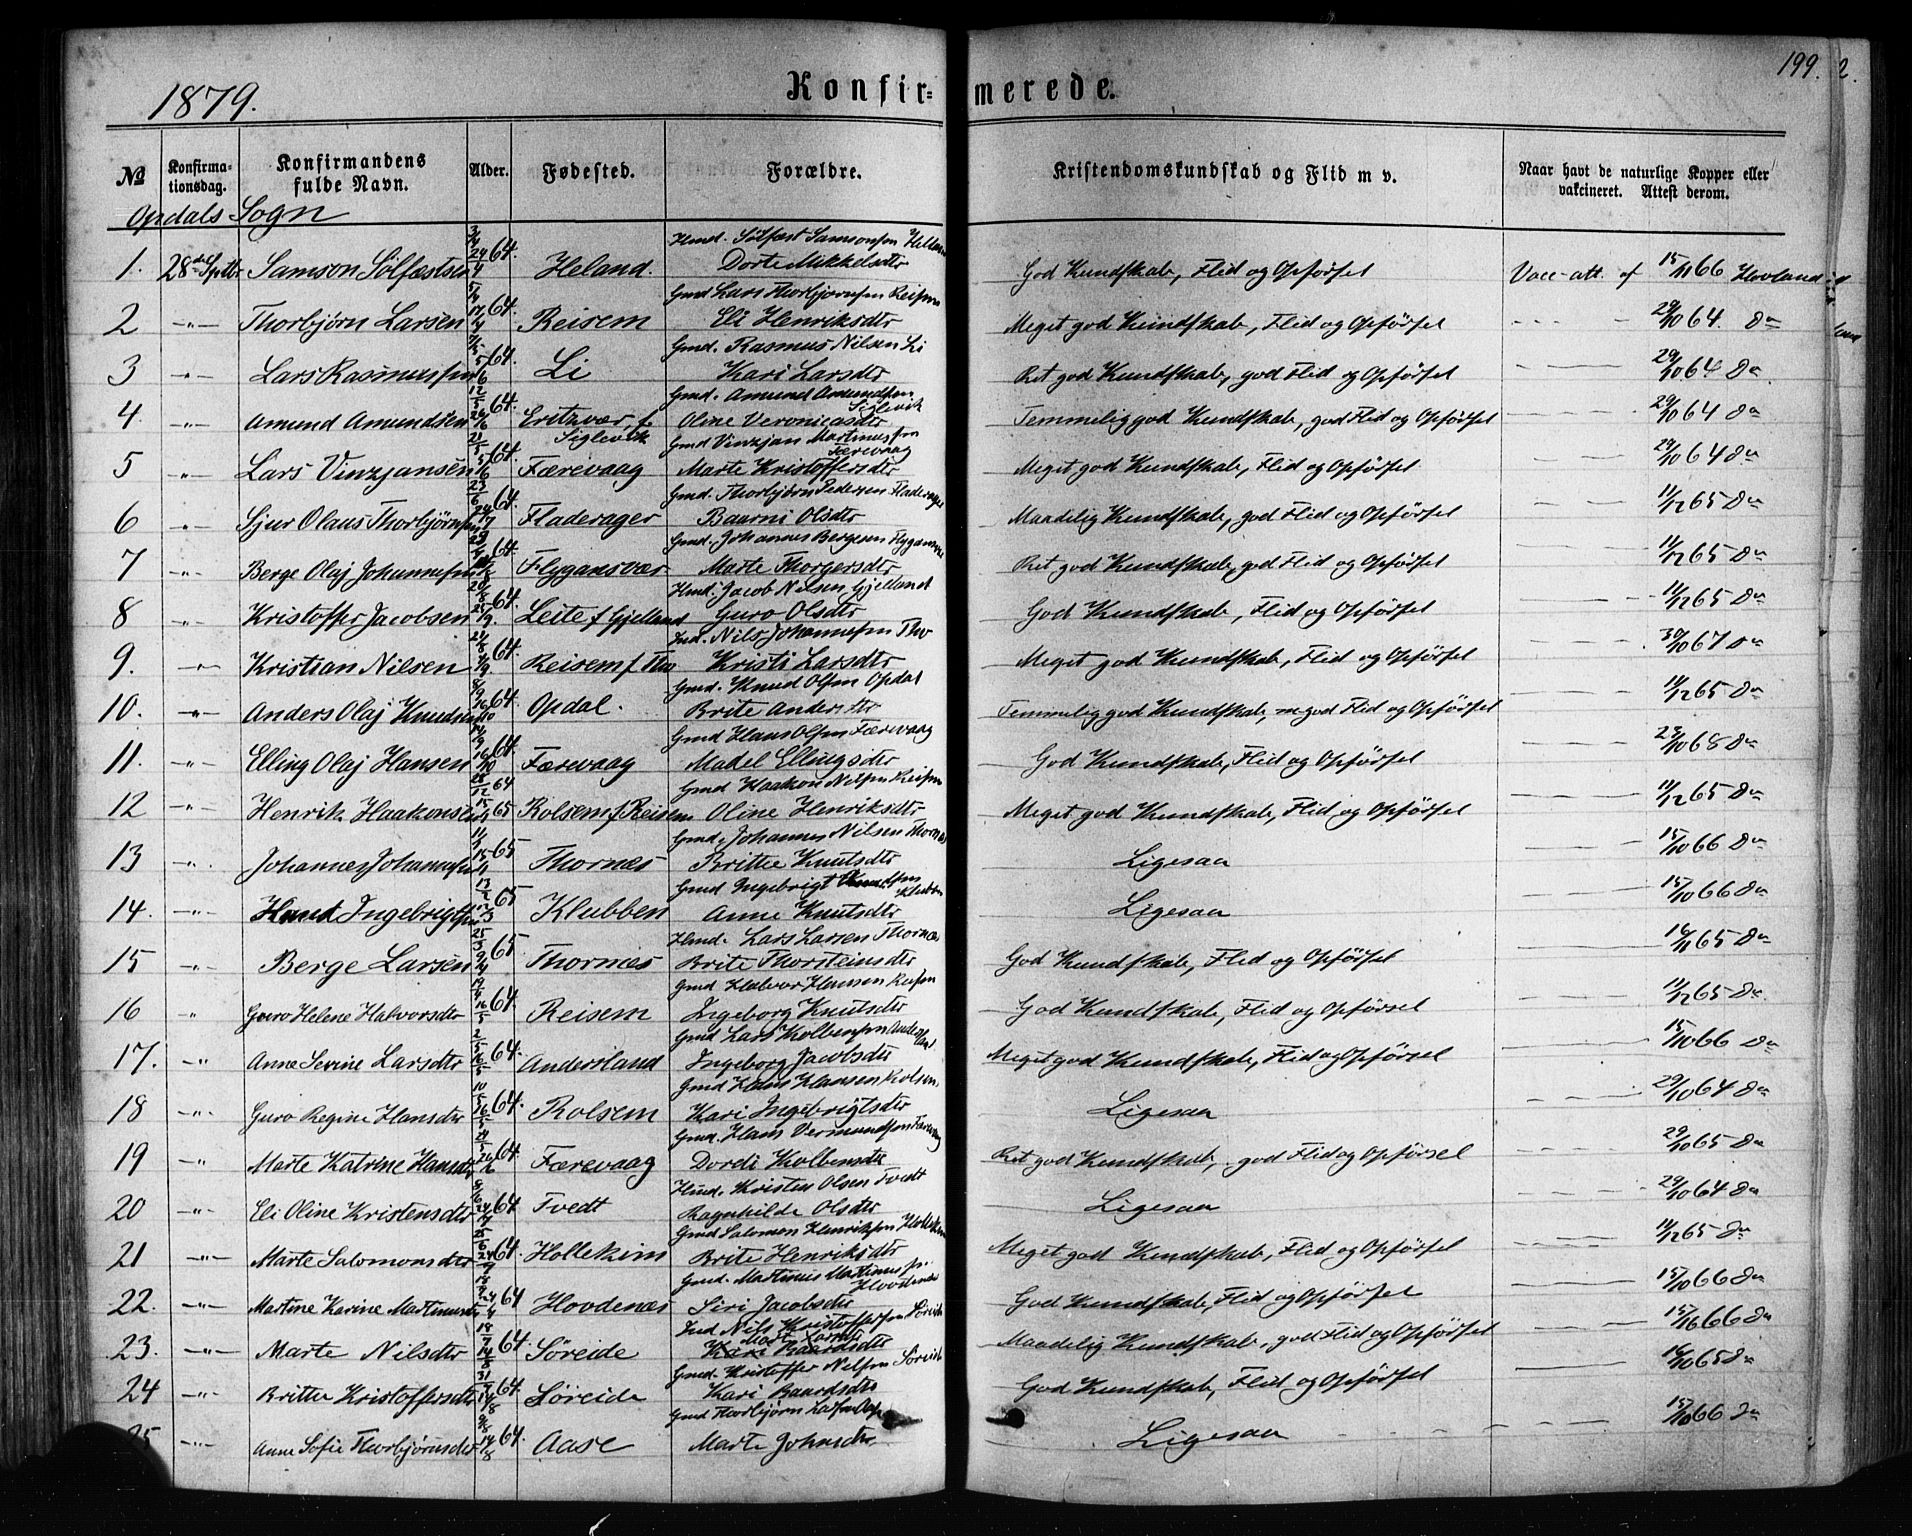 1879.
Konfir=
merede.
199.
2.
№
Konfirma-
tionsdag.
Konfirmandens
fulde Navn.
Alder.
Fødested.
Forældre.
Kristendomskundskab og Flid m v.
Naar havt de naturlige Kopper eller
vakcineret. Attest derom.
Opdals Sogn
Hmd. Sölfæst Samsonsen
1. 28de Septbr Samson Sölfæstsen 24/4 64. Heland. Dorte Mikkelsdtr God Kundskab, Flid og Opförsel Vacc-att. af 15/11 66 Hovland
Gmd Lars Thorbjørnsen Reisem
2 -"- Thorbjørn Larsen 64. Reisem Eli Henriksdtr Meget god Kundskab, Flid og Opförsel 29/10 64. Do
Gmd. Rasmus Nilsen Li
3 " Lars Rasmussen 5/6 64. Li Kari Larsdtr Ret god Kundskab, god Flid og Opförsel 29/10 64 Do
Gmd. Amund Amundsen
Siglevik
4. " Amund Amundsen 64. Oline Veronicasdtr Temmelig god Kundskab, god Flid og Opförsel 29/10 64 Do
Siglevik Gmd Vinzjan Martinussen
Færevaag
5 " Lars Vinzjansen 5/6 64 Færevaag Marte Kristoffersdtr Meget god Kundskab, Flid og Opförsel 29/10 64 Do
Gmd. Thorbjørn Pedersen Fladerager
6 " Sjur Olaus Thorbjørnsen 64. Fladerager Baurni Olsdtr Maadelig Kundskab, god Flid og Opförsel 11/12 65 Do
Gmd. Johannes Bergesen
7 " Berge Olaj Johannessen 64. Flygansvær Marte Thorgersdtr Ret god Kundskab, god Flid og Opförsel 11/12 65 Do
Hmd. Jacob Nilsen Gjelland
8 " Kristoffer Jacobsen 25/9. 64. Leite f Gjelland Guro Olsdtr God Kundskab, Flid og Opförsel 11/12 65 Do
Ind. Nils Johannessen Tho
9. -"- Kristian Nilsen 64. Reisem f. Tho Kristi Larsdtr Meget god Kundskab, Flid og Opförsel 30/10 67 Do
Gmd. Knud Olsen Opdal
10. -"- Anders Olaj Knudsen 16/10 64. Opdal. Brite Andersdtr Temmelig god Kundskab, m god Flid og Opförsel 11/12 65 Do
Gmd Hans Olsen Færevaag
11. " Elling Olaj Hansen 64. Færevaag Madel Ellingsdtr God Kundskab, Flid og Opförsel 23/10 68 Do
Gmd Haakon Nilsen Reisem
12 " Henrik Haakonsen 65 Rolsem f. Reisem Oline Henriksdtr Meget god Kundskab, Flid og Opförsel 11/12 65 Do
Gmd. Johannes Nilsen Thornæs
13 " Johannes Johannessen 65 Thornæs Brittie Knutsdtr Ligesaa 15/10 66 Do
Gmd Ingebrigt Knudsen
Klubben
14. -"- Knut Ingebrigtsen 65 Klubben Anne Knutsdtr Ligesaa 15/10 66 Do
Hmd. Lars Larsen Thornæs
15 -"- Berge Larsen 9/4 65 Thornæs Brite Thorsteinsdtr God Kundskab, Flid og Opförsel 16/11 65 Do
Gmd Halvor Hansen Reisem
16 " Guro Helene Halvorsdtr 16/5 64. Reisem Ingeborg Knutsdtr God Kundskab, Flid og Opförsel 11/12 65 Do.
Gmd Lars Kolbensen Andersland
17. -"- Anne Sevine Larsdtr 16/5 64. Andersland Ingeborg Jacobsdtr Meget god Kundskab, Flid og Opförsel 15/10 66 Do
Gmd Hans Hansen Rolsem
18 -"- Guro Regine Hansdtr 16/5 64. Rolsem Kari Ingebrigtsdtr Ligesaa 29/10 64 Do
Gmd. Hans Vermundsen Færevaag
19 -"- Marte Katrine Hansdtr 64 Færevaag Dordi Kolbensdtr Ret god Kundskab, god Flid og Opförsel 29/10 65 Do
Hmd. Kristen Olsen Tvedt
20 -"- Eli Oline Kristensdtr 64 Tvedt Ragnhilde Olsdtr Ligesaa 29/10 64 Do
Gmd Salomon Henriksen
21 -"- Marte Salomonsdtr 64. Hollekim Brite Henriksdtr Meget god Kundskab, Flid og Opförsel 11/12 65 Do
Gmd. Martinus Martinussen
Hovdenæs
22. -"- Martine Karine Martinusdtr 64 Hovdenæs Siri Jacobsdtr God Kundskab, Flid og Opförsel 15/10 66 Do
Ind Nils Kristoffersen Søreide
23. -"- Marte Nilsdtr 14/8 64 Søreide Kari Baardsdtr Maadelig Kundskab, god Flid og Opförsel 66 Do
Gmd. Kristoffer Nilsen Søreide
24 -"- Britte Kristoffersdtr 64. Søreide Kari Baardsdtr God Kundskab, Flid og Opförsel 16/10 65 Do
Gmd Thorbjørn
25 -"- Anne Sofie Thorbjørnsdtr 14/8 64. Aase Marte Johnsdtr Ligesaa 15/10 66 Do